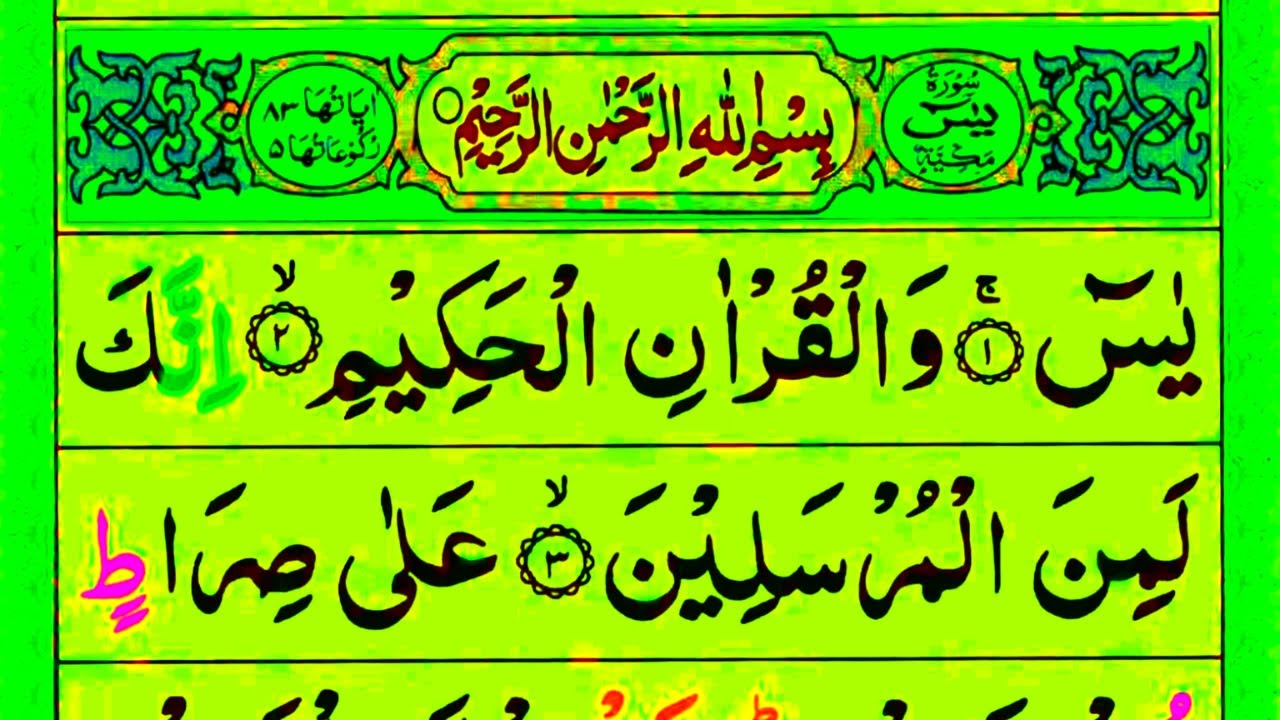 سُوْرَةُ يٰسٓ مَكِّيَّةٌ
بِسْمِ اللّٰهِ الرَّحْمٰنِ الرَّحِيْمِ ○
اٰيَاتُهَا ٨٣
رُكُوْعَاتُهَا ٥
يٰسٓ ۚ ﴿١﴾ وَالْقُرْاٰنِ الْحَكِيْمِ ۙ ﴿٢﴾ اِنَّكَ
لَمِنَ الْمُرْسَلِيْنَ ۙ ﴿٣﴾ عَلٰى صِرَاطٍ